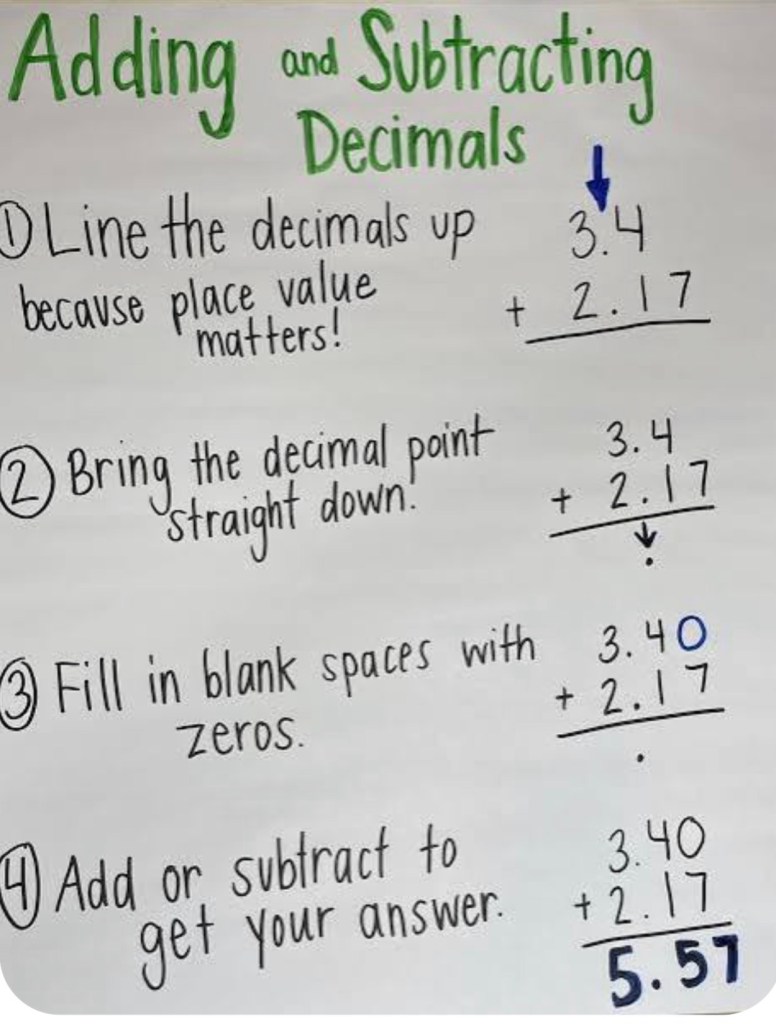 Adding and Subtracting
Decimals
① Line the decimals up
because place value
matters!
3.4
+ 2.17
② Bring the decimal point
straight down.
3.4
+ 2.17
.
③ Fill in blank spaces with
zeros.
3.40
+ 2.17
.
④ Add or subtract to
get your answer.
3.40
+ 2.17
5.57